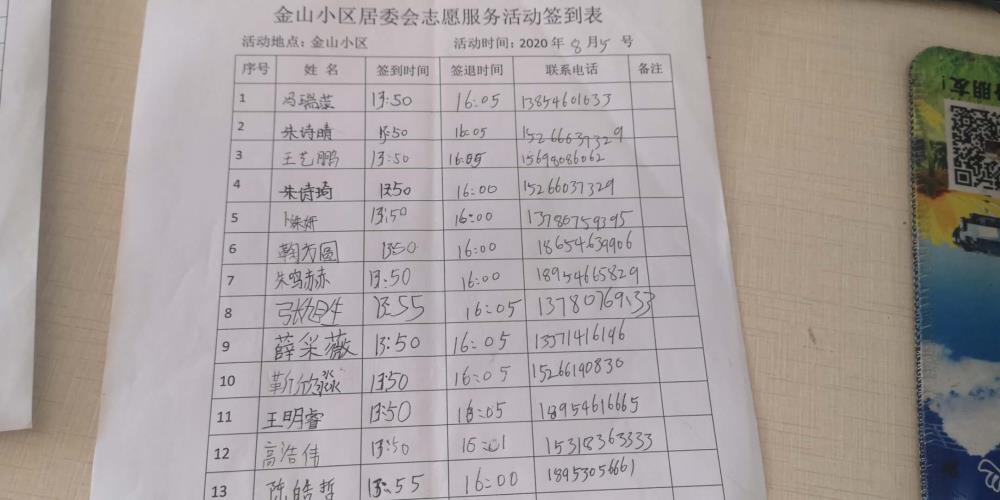 金山小区居委会志愿服务活动签到表
活动地点：金山小区 活动时间：2020年8月5号
序号 姓名 签到时间 签退时间 联系电话 备注
1 冯瑞蕊 13:50 16:05 13854601633
2 朱诗晴 13:50 16:05 15266037329
3 王艺鹏 13:50 16:05 15698086062
4 朱诗琦 13:50 16:00 15266037329
5 13:50 16:00 13780759395
6 鞠方圆 13:50 16:00 18654639906
7 朱鸣赫 13:50 16:00 18954665829
8 张旭生 13:55 16:05 13780769133
9 薛采薇 13:50 16:05 13371416146
10 靳欣淼 13:50 16:05 15266190830
11 王明睿 13:50 16:05 18954616665
12 高浩伟 13:50 16:01 15318363333
13 陈皓哲 13:55 16:00 18953056661
朋友！